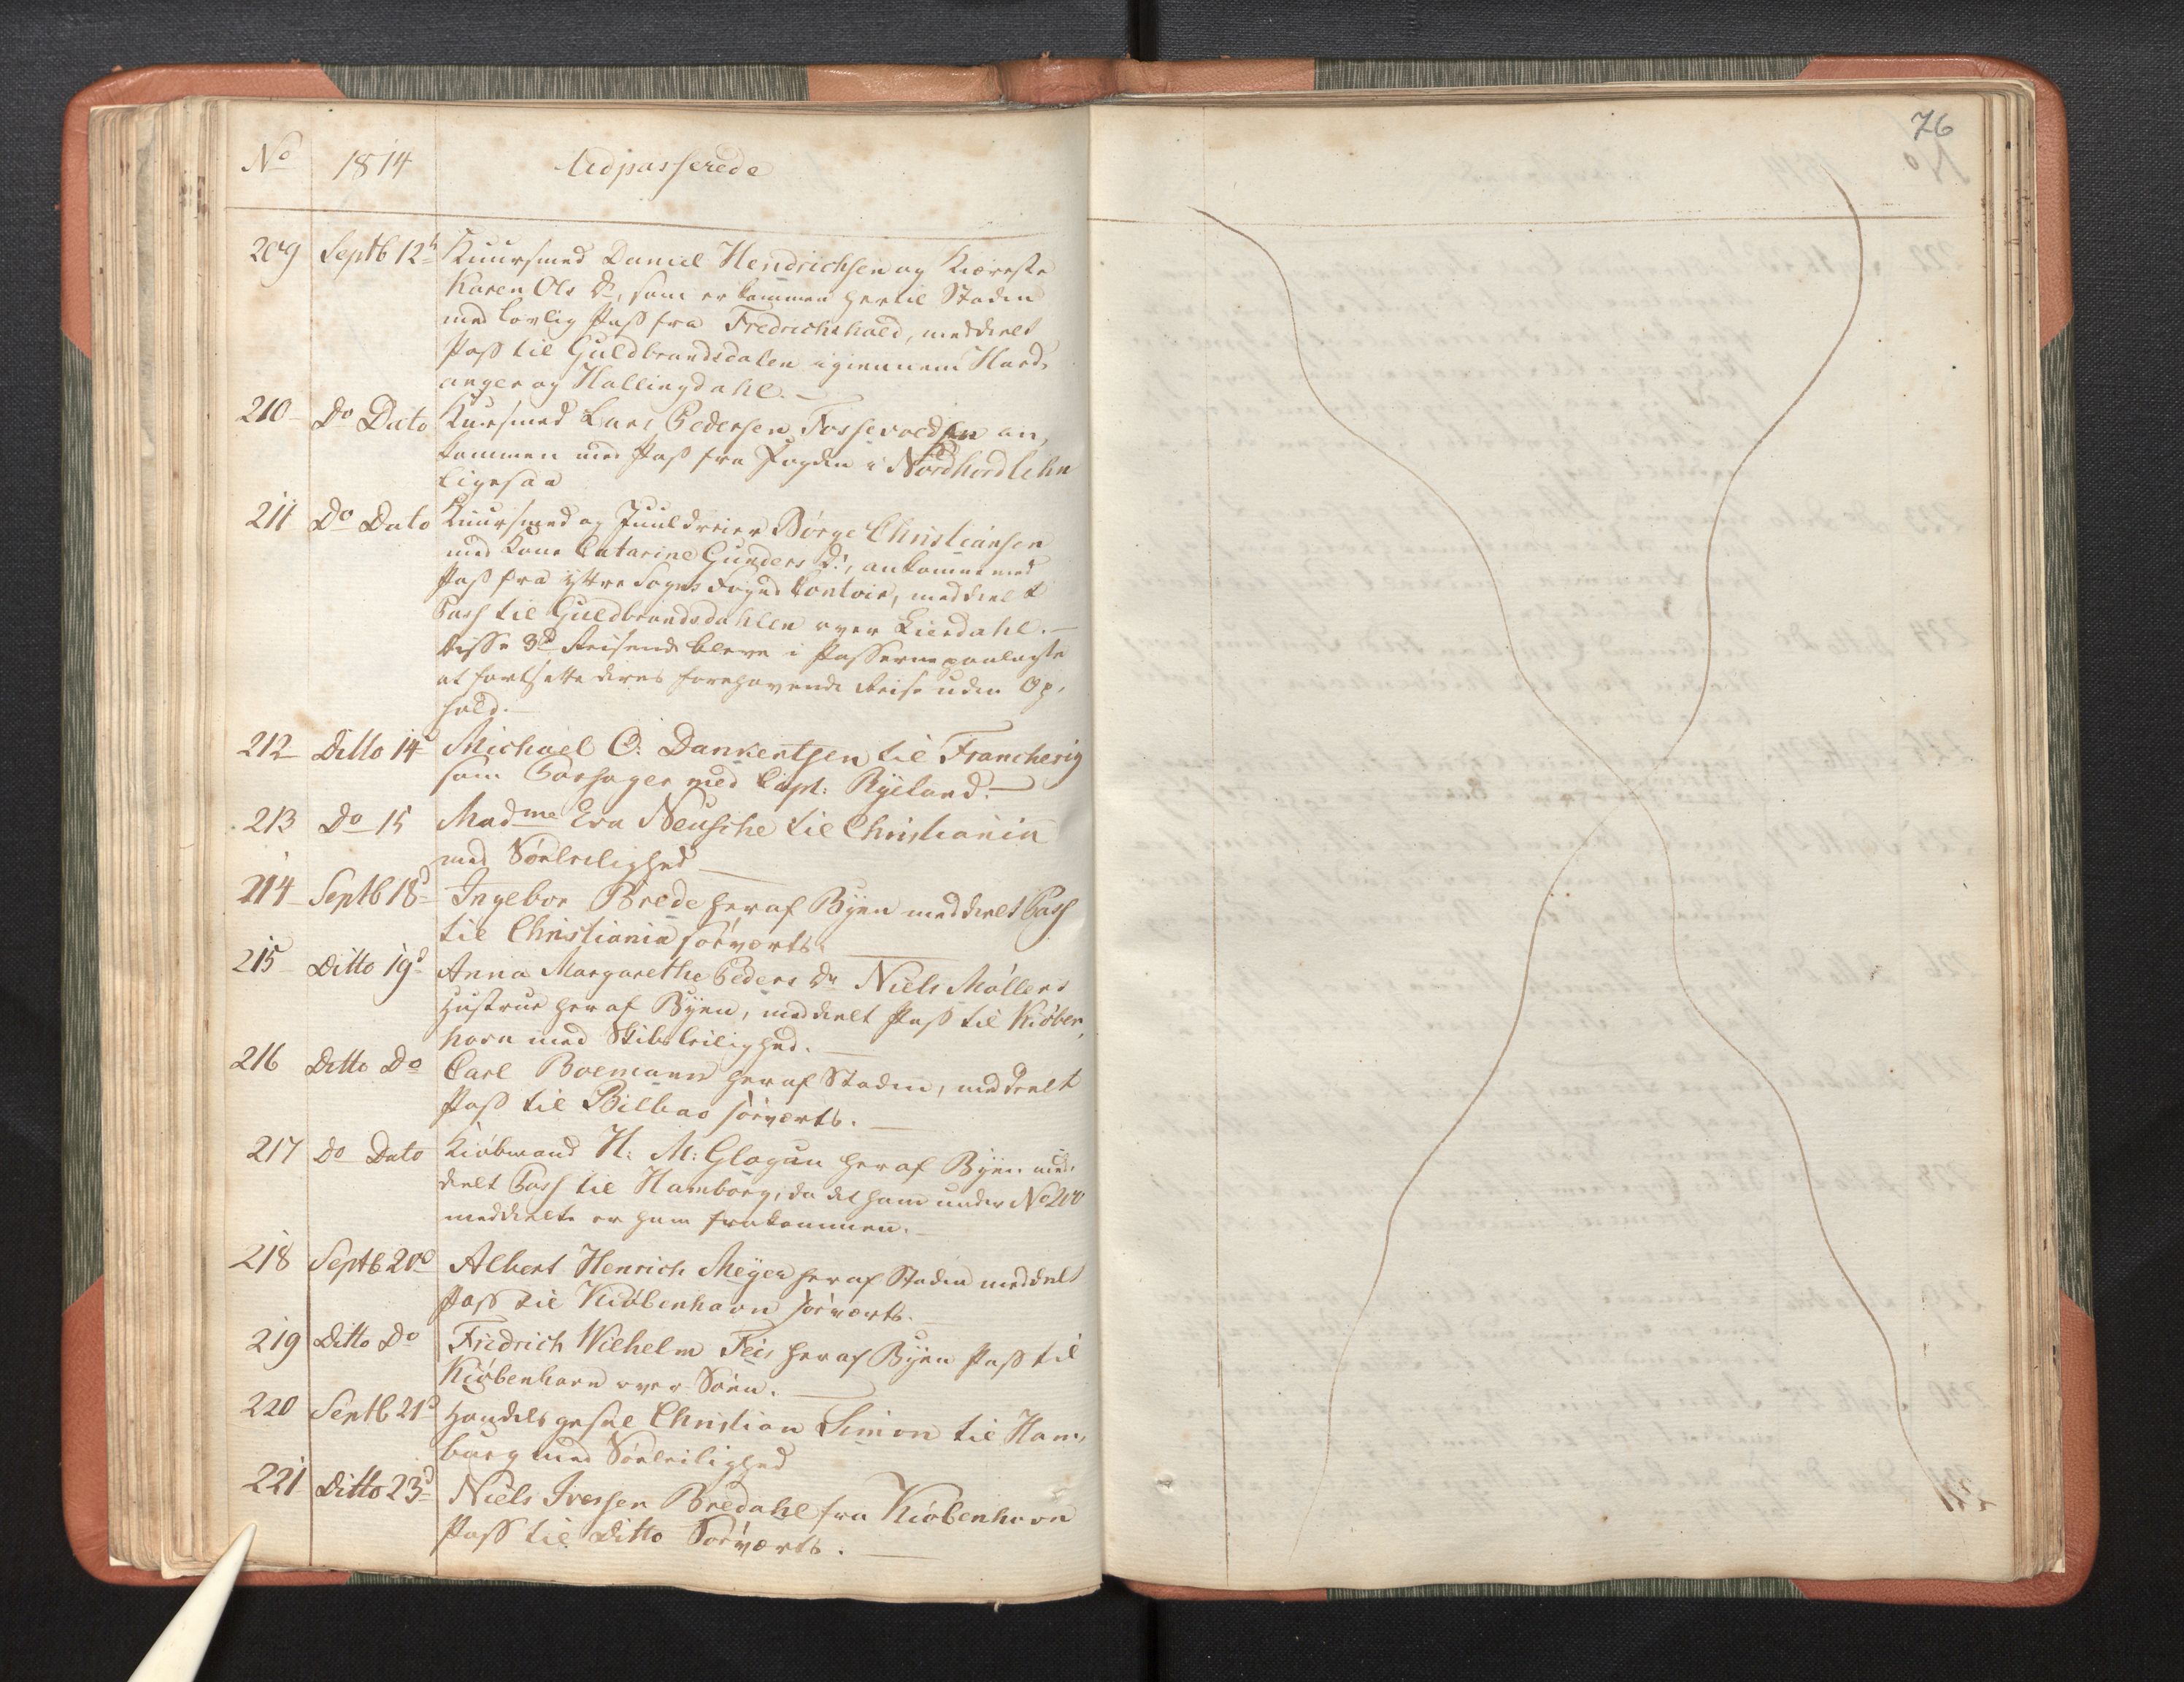 No 1814 Udpasserede
209 Septb 12t Kuursmed Daniel Hendrichsen og Kiæreste
Karen Ols Dr, som er kommen hertil Staden
med lovlig Pass fra Fredrichshald, meddeelt
Pass til Guldbrandsdalen igiennem Hard,
anger og Hallingdahl.
210 Do Dato Kursmed Lars Pedersen Fossevolden an,
kommen med Pass fra Fogden i Nordhordlehn
ligesaa
211 Do Dato Kuursmed og Juuldreier Børge Christiansen
med Kone Catarine Gunders D:, ankomne med
Pass fra ÿttre Sogns Fogd Contoir, meddeelt
Pass til Guldbrandsdahlen over Leirdahl.
Disse 3de Reisende bleve i Passerne paalagte
at fortsætte deres forehavende Reise uden Op,
hold.
212 Ditto 14d Michael C: Dankertsen til Francherig
som Passager med Capt: Rÿeland.
213 Do 15 Madme Eva Neusche til Christiania
med Søeleilighed
214 Septb 18d Ingebor Brede her af Bÿen meddeelt Pass
til Christiania søeværts.
215 Ditto 19d Anna Margarethe Peders Dr Niels Møllers
Hustrue her af Bÿen, meddeelt Pass til Kiøben,
havn med Skibsleilighed.
216 Ditto Do Carl Boemann her af Staden, meddeelt
Pass til Bilbao søeværts.
217 Do Dato Kiøbmand H: M: Glogau her af Bÿen med,
deelt Pass til Hamborg, da det ham under No 200
meddeelte er ham frakommen.
218 Septb 20d Albert Henrich Meÿer her af Staden meddeelt
Pass til Kiøbenhavn søeværts.
219 Ditto Do Fridrich Wilhelm Feis her af Bÿen Pass til
Kiøbenhavn over Søen.
220 Septb 21d Handelsgesel Christian Simon til Ham,
burg med Søeleilighed
221 Ditto 23d Niels Iversen Bredahl fra Kiøbenhavn
Pass til Ditto Søeværts.
76